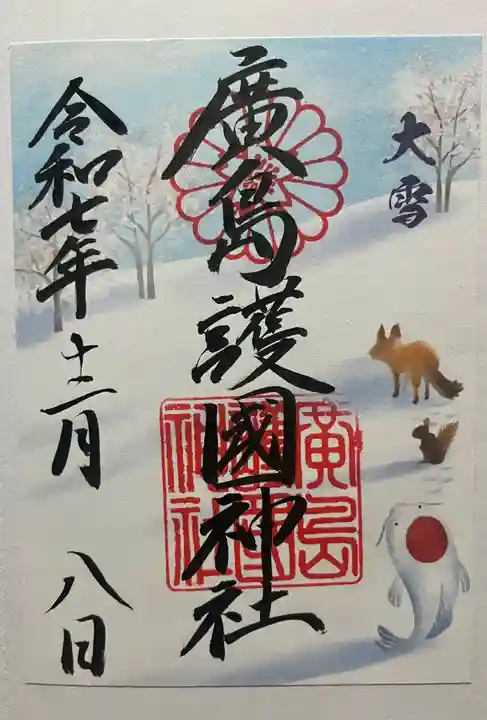 大雪
廣島護國神社
令和七年十二月八日
廣島
護國
神社